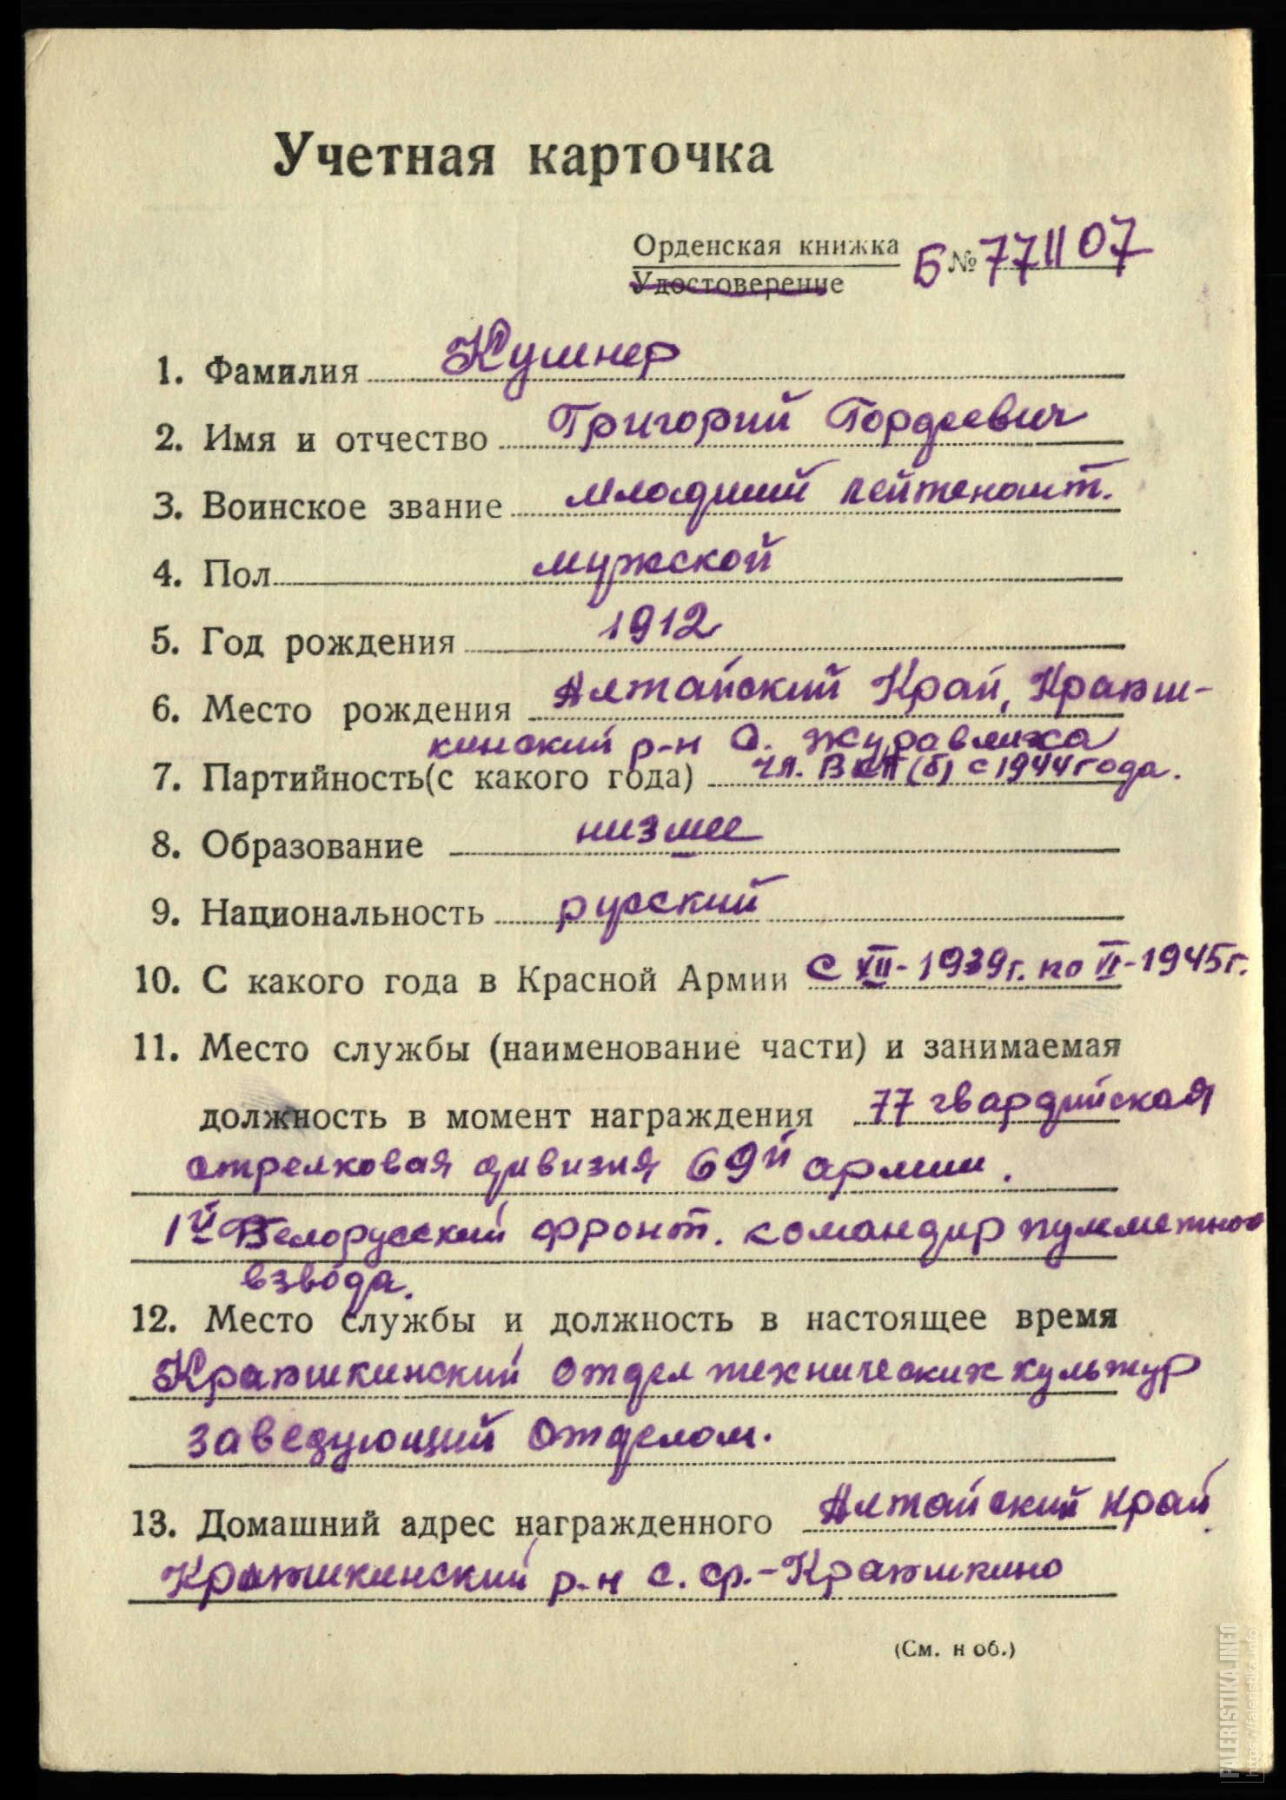 Учетная карточка
Орденская книжка
Удостоверение Б № 771107
1. Фамилия Кушнер
2. Имя и отчество Григорий Гордеевич
3. Воинское звание младший лейтенант.
4. Пол мужской
5. Год рождения 1912
6. Место рождения Алтайский Край, Крапив-
кинский р-н с. Журавлиха
7. Партийность(с какого года) чл. ВКП(б) с 1944 года.
8. Образование низшее
9. Национальность русский
10. С какого года в Красной Армии С XII-1939г. по VI-1945г.
11. Место службы (наименование части) и занимаемая
должность в момент награждения 77 гвардийская
стрелковая дивизия 69й армии.
1й Белорусский фронт. командир пулметного
взвода.
12. Место службы и должность в настоящее время
отдел технических культур
заведующий отделом.
13. Домашний адрес награжденного Алтайский край
р-н с. ср.-
(См. н об.)
FALERISTIKA.INFO
https://faleristika.info